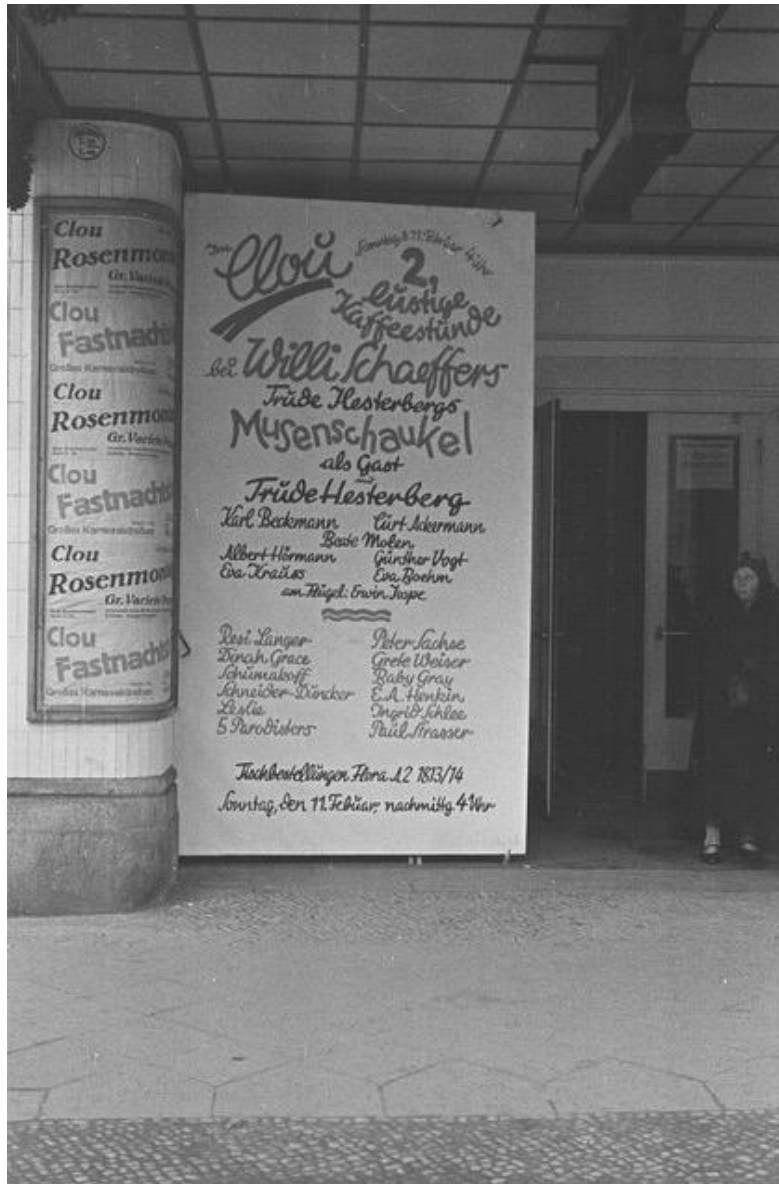 Clou
Rosenmon
Gr. Varieté
Clou
Fastnachts
Großes Karnevalstreiben
Clou
Rosenmon
Gr. Varieté
Clou
Fastnachts
Großes Karnevalstreiben
Clou
Rosenmon
Gr. Varieté
Clou
Fastnachts
Großes Karnevalstreiben
Im Clou
Sonntag, d. 11. Febuar 4 Uhr
2.
lustige
Kaffeestunde
bei Willi Schaeffers
Trude Hesterbergs
Musenschaukel
als Gast
Trude Hesterberg
Karl Beckmann Curt Ackermann
Beate Molen
Albert Hörmann Günther Vogt
Eva Krauss Eva Boehm
am Flügel: Erwin Jospe
Resi Langer Peter Sachse
Dinah Grace Grete Weiser
Schumakoff Baby Gray
Schneider-Duncker E.A. Henkin
Leslie Ingrid Schlee
5 Parodisters Paul Strasser
Tischbestellungen Flora A2 1813/14
Sonntag, den 11. Febuar, nachmittg. 4 Uhr